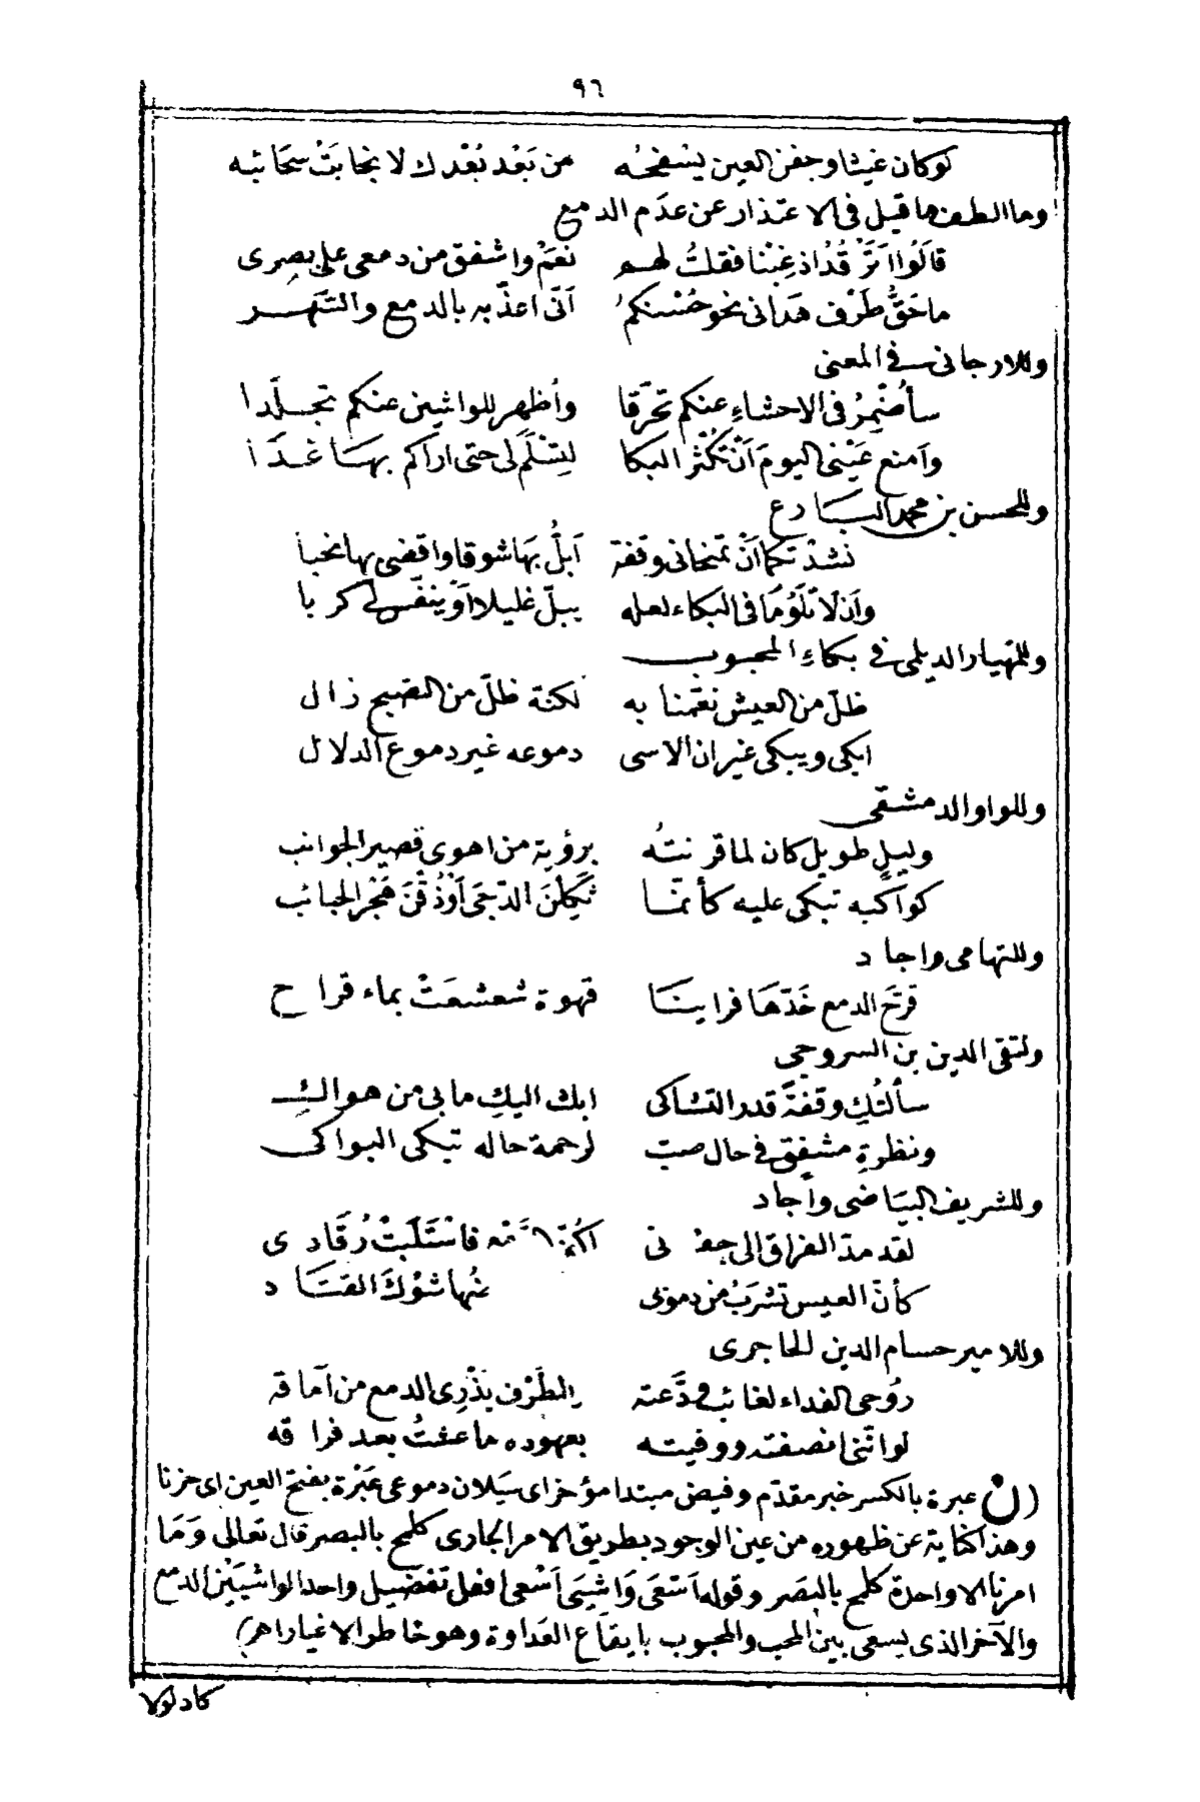 ٩٦
لوكان غيثا وجفن العين يسفحه من بَعْد بُعْدك لا نجابَتْ سحَائبه
وما الطف ما قيل فى الاعتذار عن عدَم الدمع
قالُوا اتَرْقُدُ اذ غِبْنا فقلتُ لهم نعَمْ واشفق من دمعى على بصرى
ما حَقُّ طَرْف هَدانى نحو حُسْنكمُ اَنّى اعذّبه بالدمع والسَّهر
وللارجانى فى المعنى
سأُضْمِرُ فى الاحشاءِ عنكم تحرّقا واُظهر للواشين عنكم تجلّدا
وَامنع عَيْنى اليومَ اَنْ تُكْثر البكا لتَسْلَم لى حتى اراكم بهَا غَدَا
وللحسن بن محمد البَارع
نشدْ تكما اَنْ تمنحانى وقفة اَبلُّ بهَا شوقا واقضى بها نحبا
وَاَن لَا تلَوُمَا فى البكاء لعله يبلّ غليلا اَوْ ينفّس لى كربا
وللمهيار الديلمى فى بكاءِ المحبوب
ظلّ من العيش نعّمنا به لكنّه ظلّ من الصبح زال
ابكى ويبكى غير ان الاسى دموعه غير دموع الدلال
وللواوا الدمشقى
وليلٍ طويل كان لما قرنتُه برؤية من اهوى قصير الجوانب
كواكبه تبكى عليه كأنّما ثكِلْنَ الدّجَى اَوْ ذُقْنَ هَجْر الحبائب
وللتهامى واجاد
قرحَ الدمع خَدّهَا فراينَا قهوة شعشعَتْ بماء قراح
ولتقى الدين بن السروجى
سألتُكِ وقفةً قدر التشاكى ابك اليكِ ما بى من هواكِ
ونظرةِ مشفق فى حال صبّ لرحمة حاله تبكى البواكى
وللشريف البيَاضى وأجاد
لقد مدّ الفراق الى جفونى فاسْتَلَبَتْ رُقَادى
كأنّ العيس تشرَبُ من دموعى شوْكَ القتَاد
وللامير حسام الدين الحاجرى
رُوحى الفداء لغائب ودَّعته والطَرْف يَذْرِى الدمع من آماقه
لو اتّنى انصفته ووفيته بعهوده ما عشتُ بعد فراقه
(ن) عبرة بالكسر خبر مقدّم وفيض مبتدا مؤخر اى سَيَلان دموعى عَبْرة بفتح العين اى حزنا
وهذا كناية عن ظهوره من عين الوجود بطريق الامر الجارى كلمح بالبصر قال تعالى وَمَا
امرنا الا واحدة كلمح بالبصَر وقوله اَسْعَى وَاشِيَىّ اَسْعى افعل تفضيل واحد الواشيَيْن الدمع
والآخر الذى يسعى بين المحب والمحبوب بايقاع العَداوة وهو خاطر الاغيار اهـ)
كاد لولا